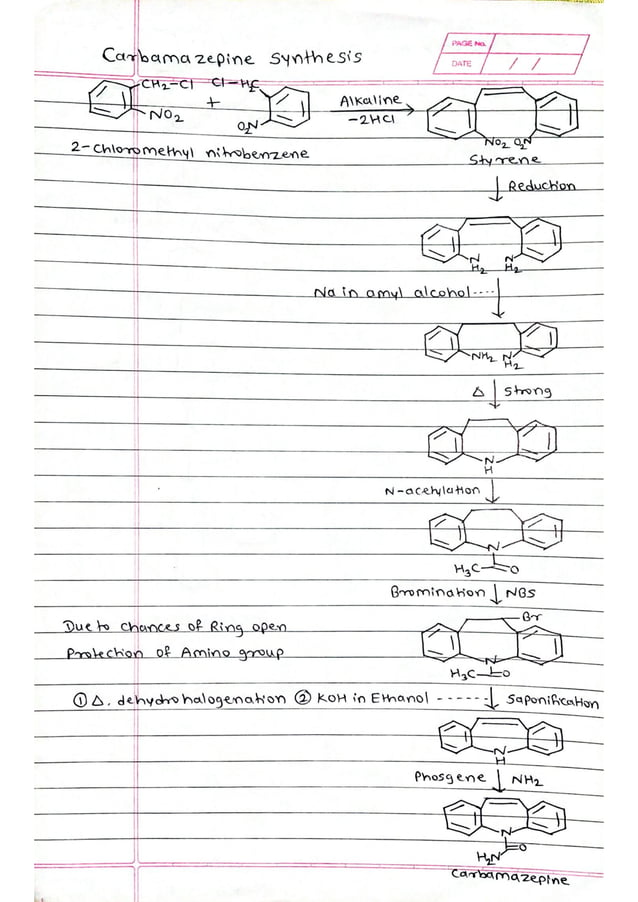 Carbamazepine synthesis
PAGE No.
DATE / /
CH2-Cl Cl-H2C
+ Alkaline
NO2 O2N -2HCl
NO2 O2N
2-chloromethyl nitrobenzene Styrene
Reduction
N H2 N H2
Na in amyl alcohol----
NH2 N H2
Δ Strong
N
H
N-acetylation
N
H3C O
Bromination NBS
Br
Due to chances of Ring open
Protection of Amino group
N
H3C O
① Δ. dehydrohalogenation ② KOH in Ethanol ------ Saponification
N
H
Phosgene NH2
N
O
H2N
Carbamazepine